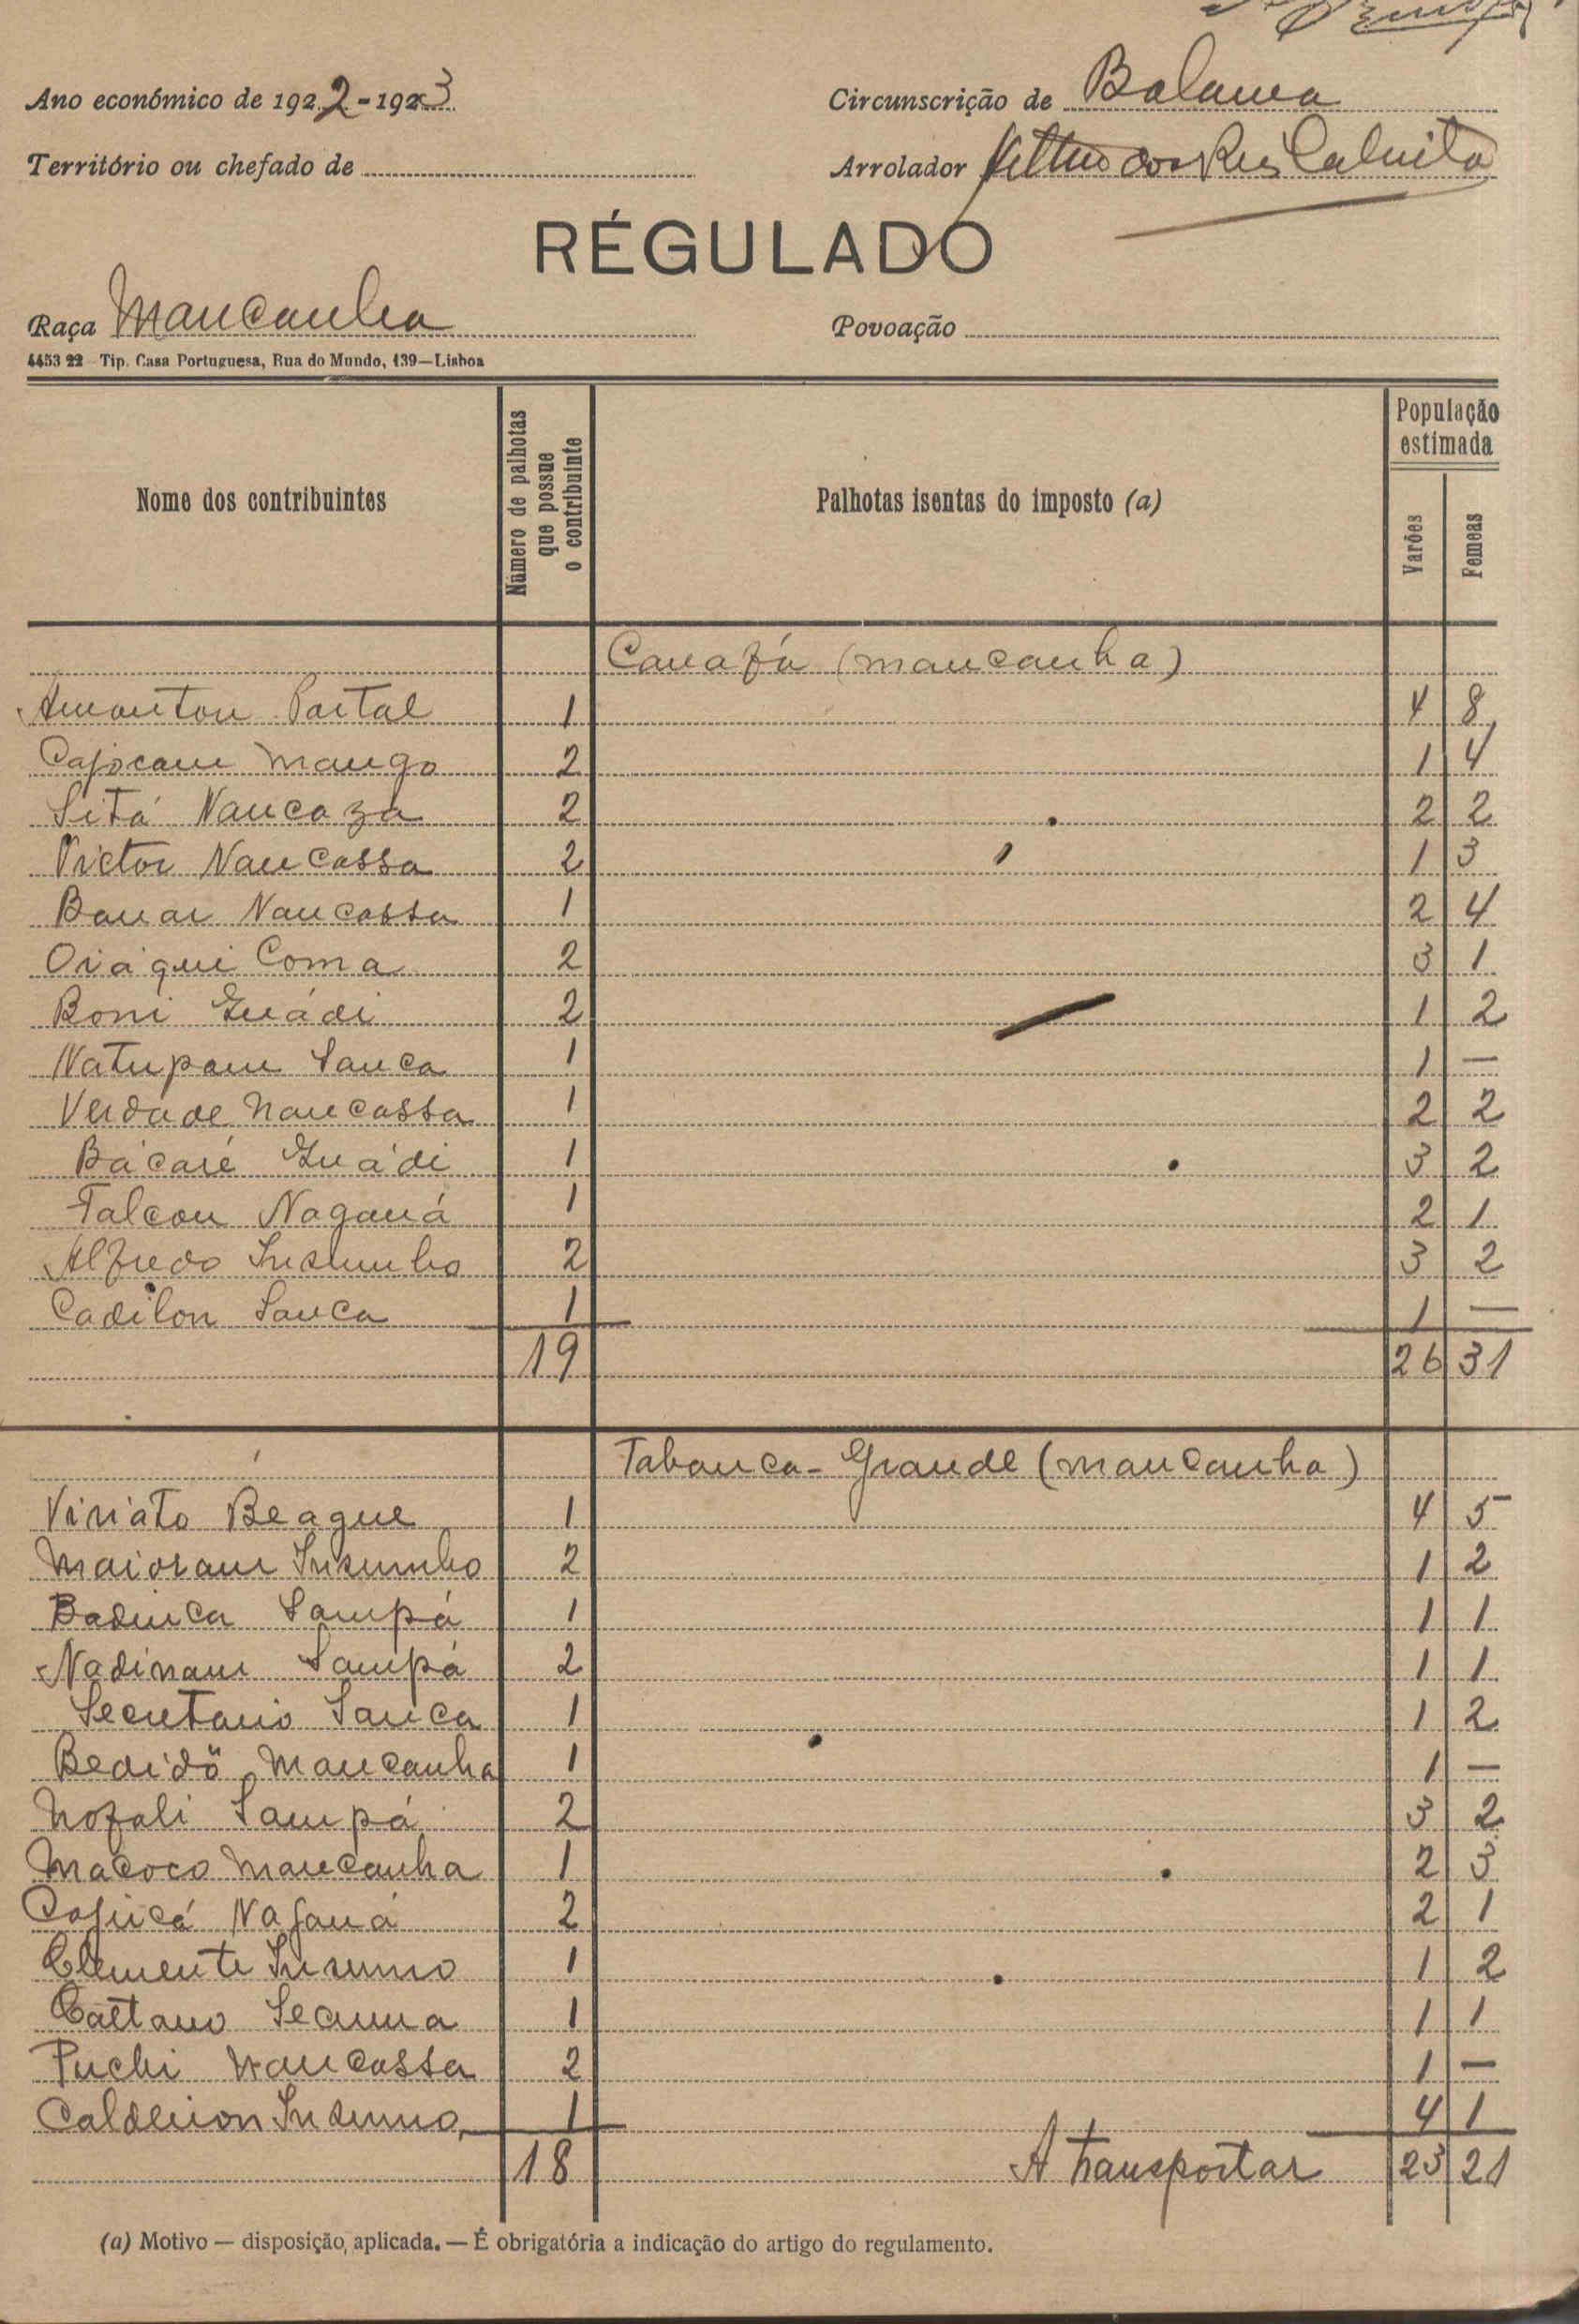 Ano económico de 1922-1923
Circunscrição de Bolama
Território ou chefado de
Arrolador
RÉGULADO
Raça Mancanha
Povoação
4453 22 Tip. Casa Portuguesa, Rua do Mundo, 139—Lisboa
Nome dos contribuintes
Número de palhotas que possue o contribuinte
Palhotas isentas do imposto (a)
População estimada
Varões
Femeas
Canafá (mancanha)
Amonton Portal 1 4 8
Cajocam Mango 2 1 4
Sitá Nancaza 2 2 2
Victor Nancassa 2 1 3
Banar Nancassa 1 2 4
Oiáqui Coma 2 3 1
Boni Guádi 2 1 2
Natupam Sanca 1 1 —
Verdade Nancassa 1 2 2
Bácaré Guádi 1 3 2
Falcon Naganá 1 2 1
Alfredo Insumho 2 3 2
Cadilon Sanca 1 1 —
19 26 31
Tabanca-Grande (mancanha)
Viriato Beague 1 4 5
Maioram Insumho 2 1 2
Badinca Sampá 1 1 1
Nadinam Sampá 2 1 1
Secretario Sanca 1 1 2
Bedidö Mancanha 1 1 —
Nofali Sampá 2 3 2
Macoco Mancanha 1 2 3
Cajucá Nafaná 2 2 1
Clemente Insumo 1 1 2
Caetano 1 1 1
Puchi Nancassa 2 1 —
Caldeiron Insumo 1 4 1
18 A transportar 23 21
(a) Motivo — disposição, aplicada. — É obrigatória a indicação do artigo do regulamento.